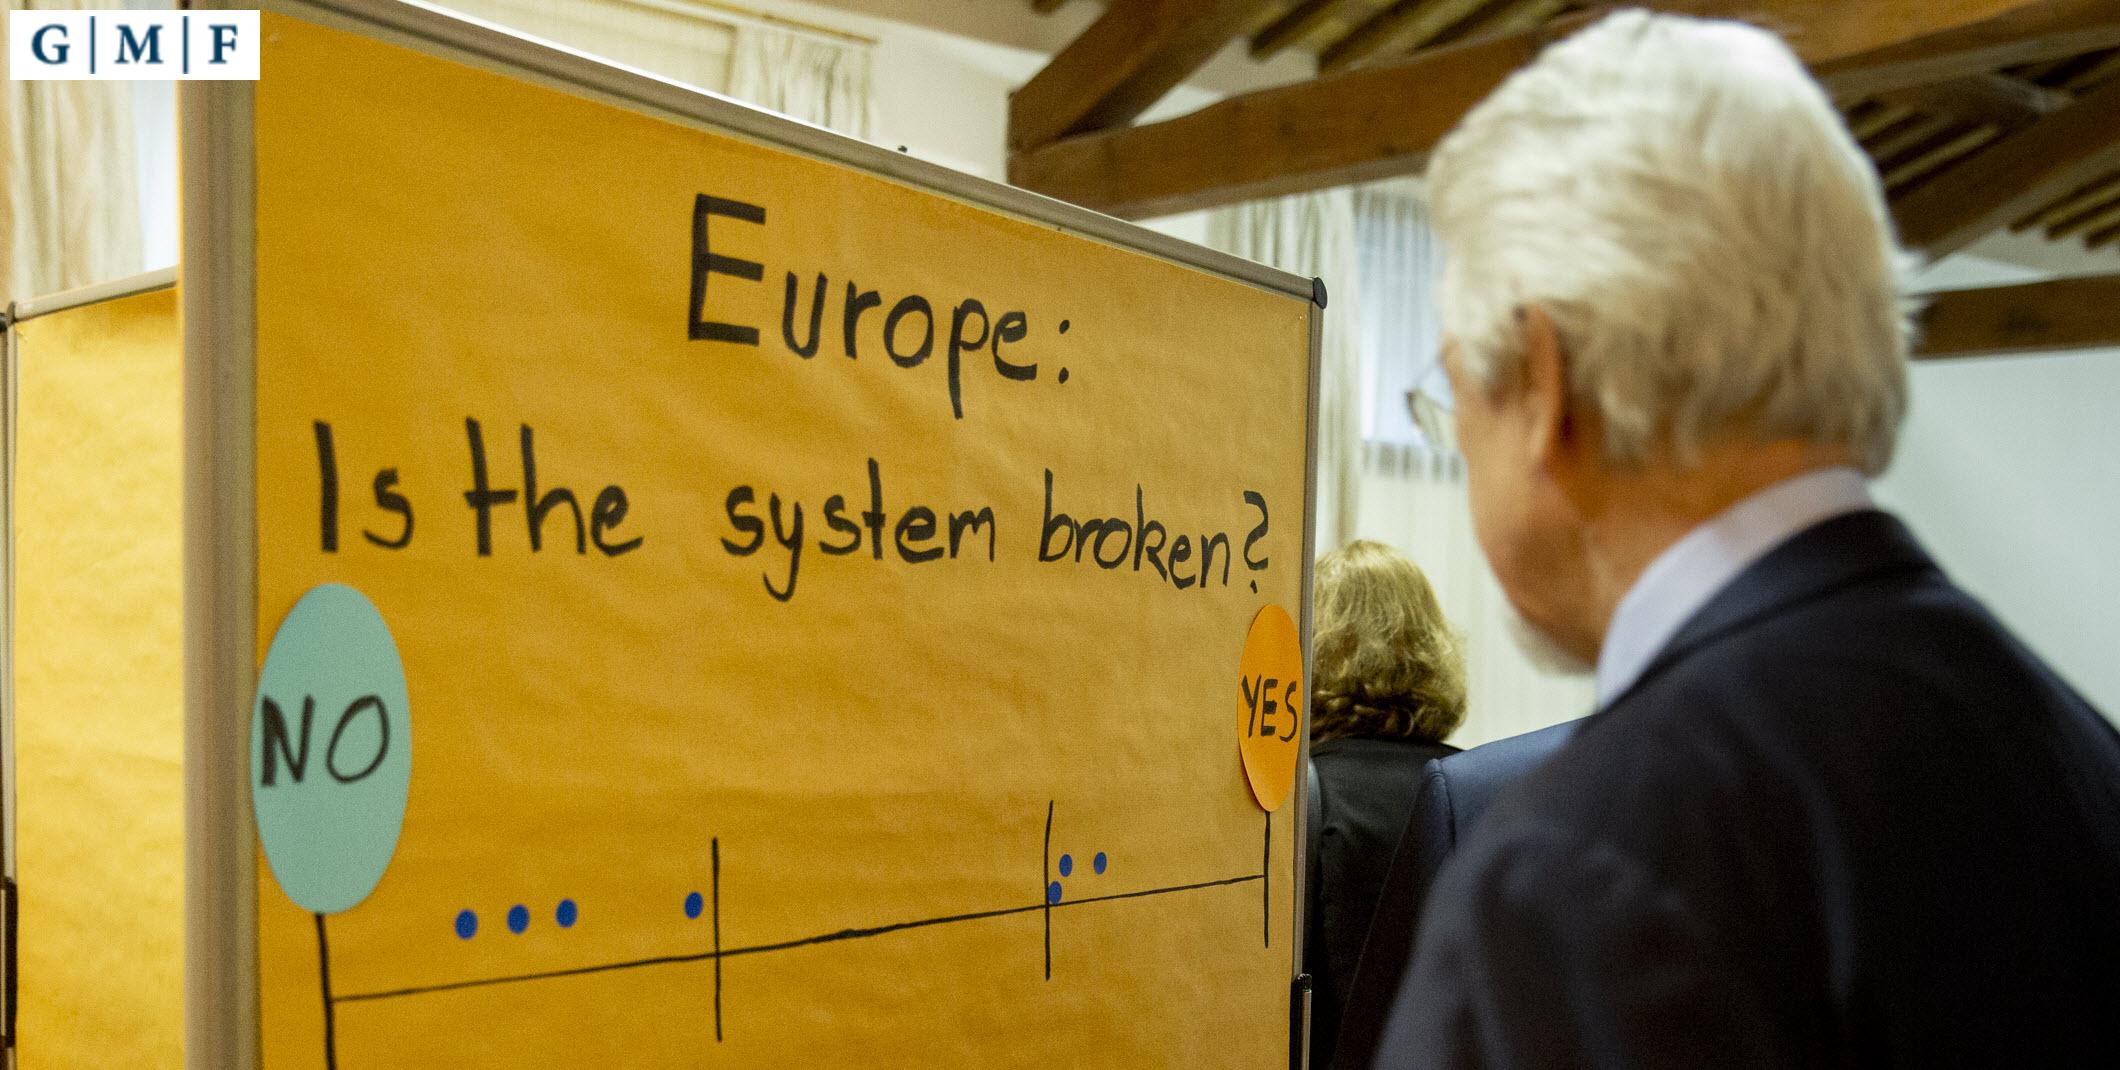 G|M|F
Europe:
Is the system broken?
NO
YES